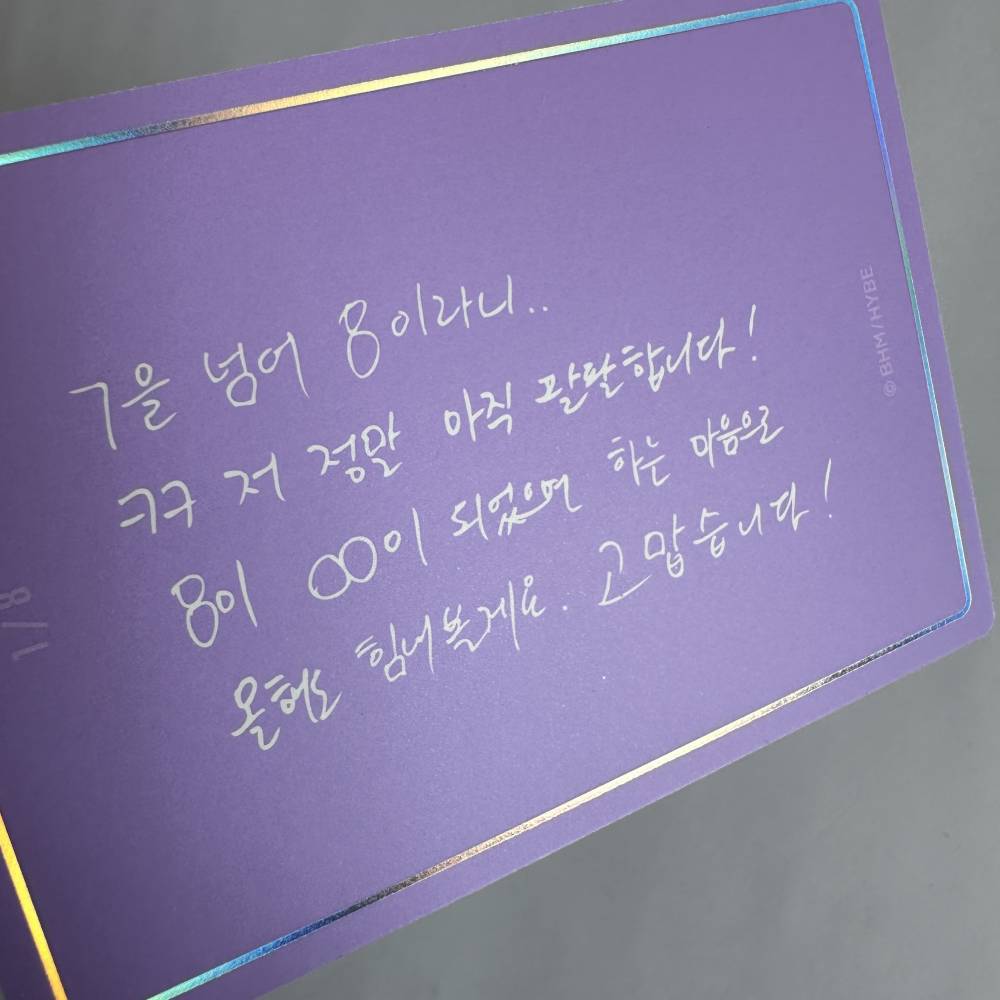 7을 넘어 8이라니..
ㅋㅋ 저 정말 아직 팔팔합니다!
8이 ∞이 되었으면 하는 마음으로
올해도 힘내볼게요. 고맙습니다!
© BHM/HYBE
1/8